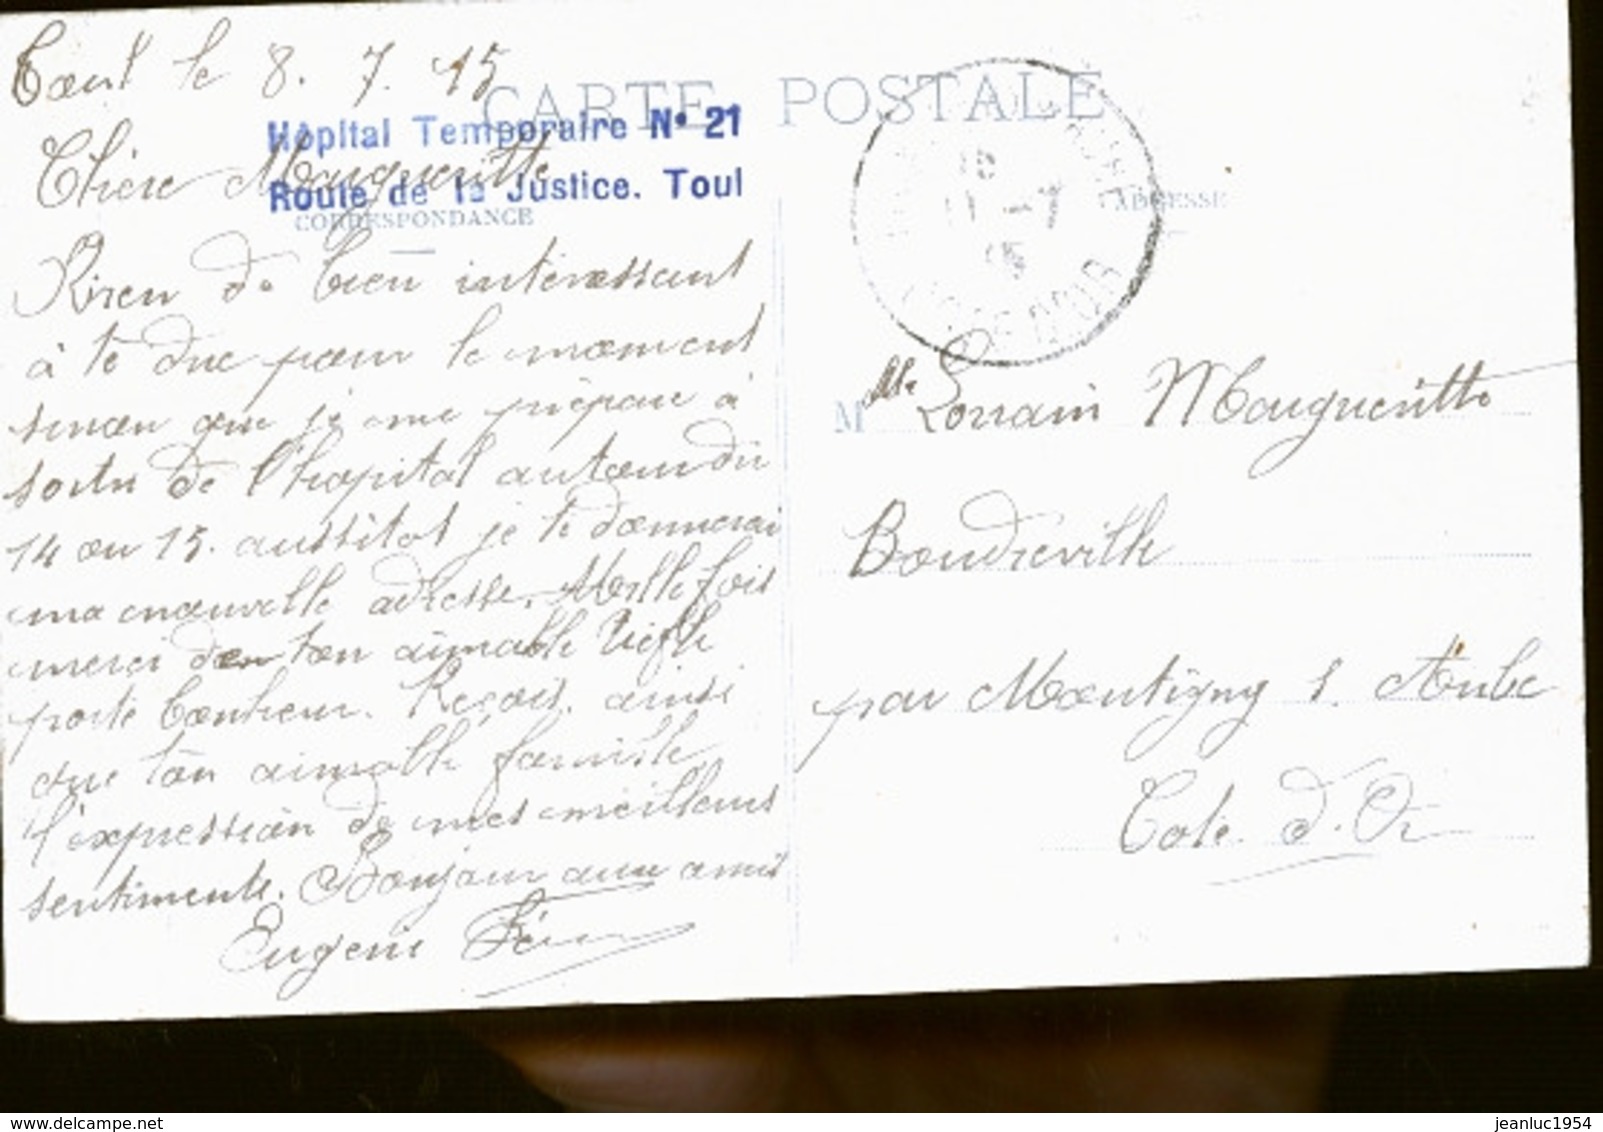 Toul le 8. 7. 15
CARTE POSTALE
Hôpital Temporaire No 21
Route de la Justice. Toul
Chère Margueritte
CORRESPONDANCE
ADRESSE
Rien de bien intéressant
à te dire pour le moment
sinon que je me prépare à
sortir de l'hopital autour du
14 ou 15. aussitot je te donnerai
ma nouvelle adresse. Mille fois
merci de ton aimable trèfle
porte bonheur. Reçois, ainsi
que ton aimable famille,
l'expression de mes meilleurs
sentiments. Bonjour aux amis
Eugene
11 -7
15
COTE D'OR
M lle Lorrain Margueritte
Boudreville
par Montigny s. Aube
Cote. d'Or
delcampe.net
jeanluc1954